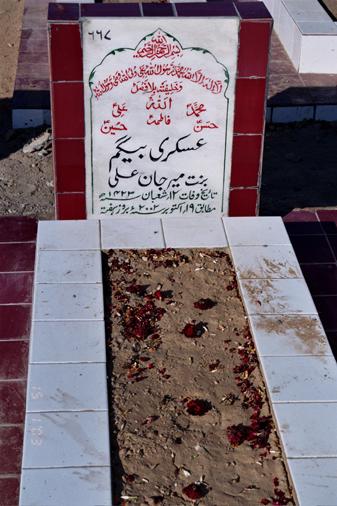 ۶۶۷
بسم الله الرحمن الرحيم
لا اله الا الله محمد رسول الله علی ولی الله وصی رسول الله
وخلیفتہ بلا فصل
الله
محمدؐ
علیؑ
فاطمہؑ
حسنؑ
حسینؑ
عسکری بیگم
بنت میر جان علی
تاریخ وفات ۱۲ شعبان ۱۴۲۳ھ
مطابق ۱۹ اکتوبر ۲۰۰۲ بروز ہفتہ
15 1 03